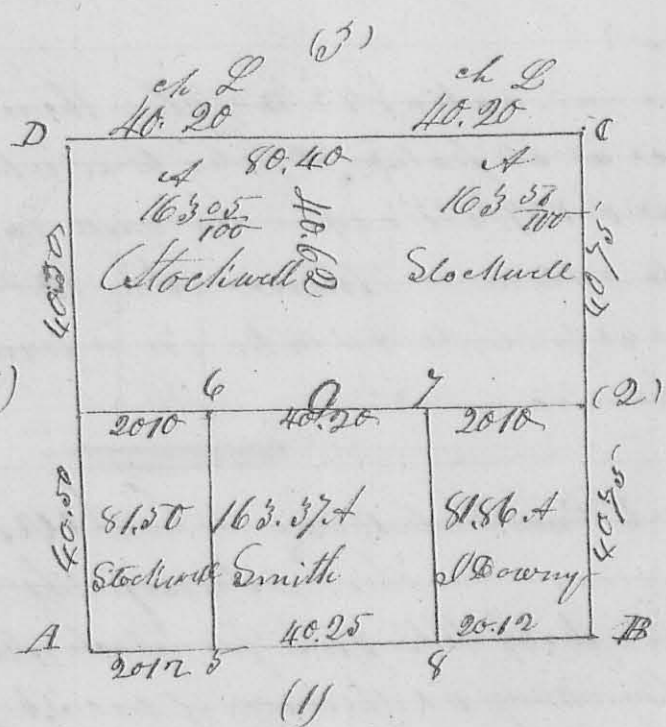 (3)
ch L
40.20
ch L
40.20
D
C
80.40
A
163 05/100
A
163 57/100
40.62
Stockwell
Stockwell
40.50
40.75
6
7
(2)
2010
40.20
2010
40.50
81.50
163.37A
81.86 A
40.75
Stockwell
Smith
Downy
A
B
2012
5
40.25
8
20.12
(1)